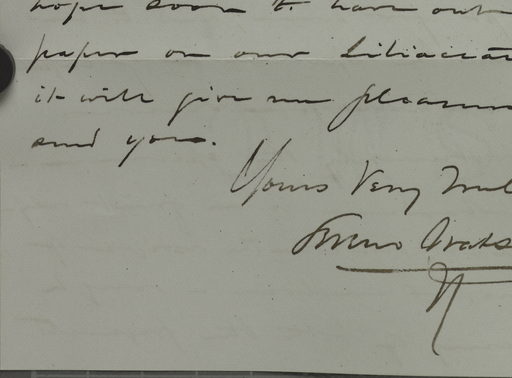 hope soon to have out
paper on our Liliaceæ
it will give me pleasure
send you.
Yours Very Trul
Sereno Wats